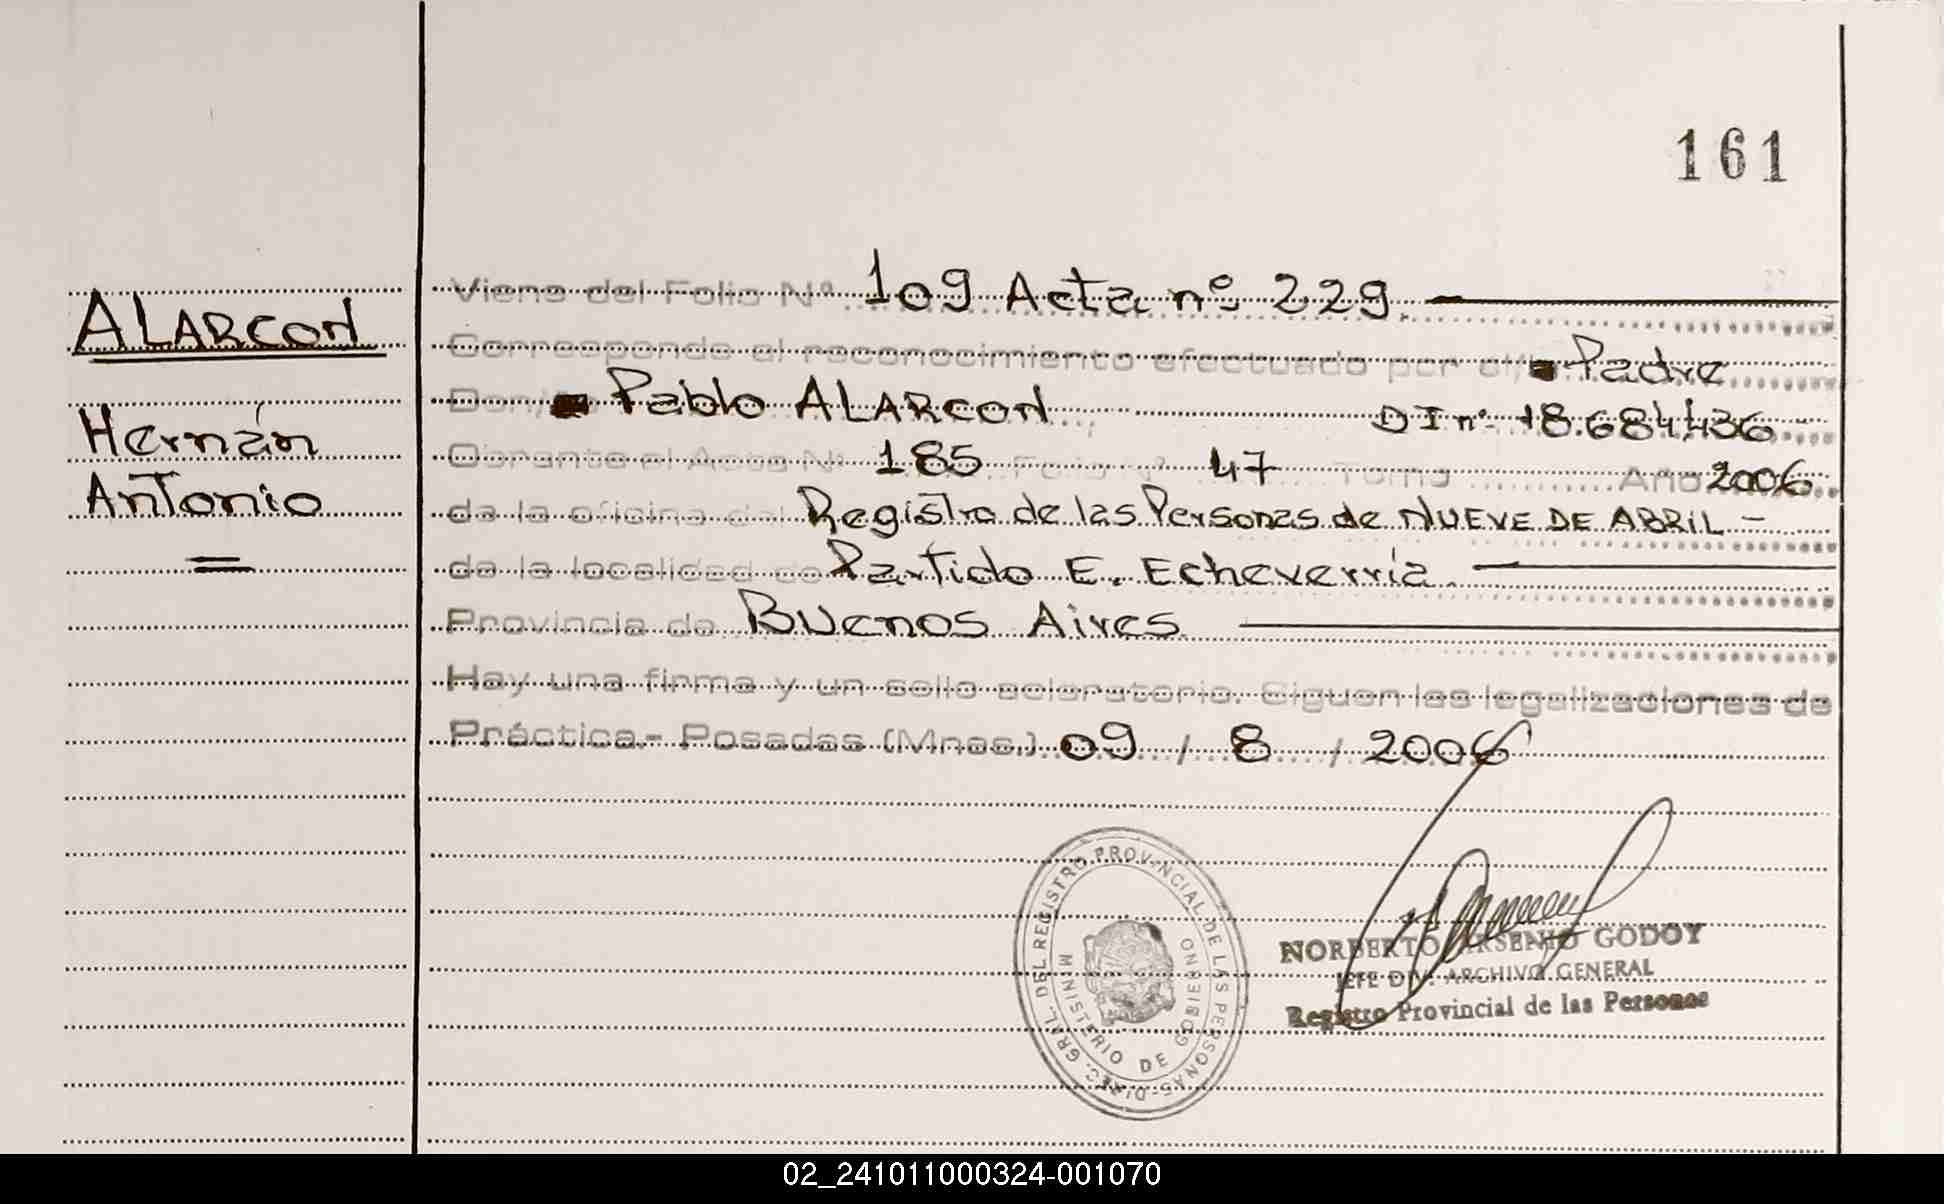 161
ALARCON
Hernán
Antonio
Viene del Folio Nº 109 Acta nº 229.
Corresponde al reconocimiento efectuado por el/ Padre
Don/ Pablo ALARCON DI nº 18.684.436
Obrante al Acta Nº 185 Folio Nº 47 Tomo Año 2006
de la oficina del Registro de las Personas de NUEVE DE ABRIL -
de la localidad de Partido E. Echeverría.
Provincia de Buenos Aires
Hay una firma y un sello aclaratorio. Siguen las legalizaciones de
Práctica.- Posadas (Mnes.) 09 / 8 / 2006
DIREC. GRAL. DEL REGISTRO PROVINCIAL DE LAS PERSONAS-
MINISTERIO DE GOBIERNO
NORBERTO ARSENIO GODOY
JEFE DIV. ARCHIVO GENERAL
Registro Provincial de las Personas
02_241011000324-001070